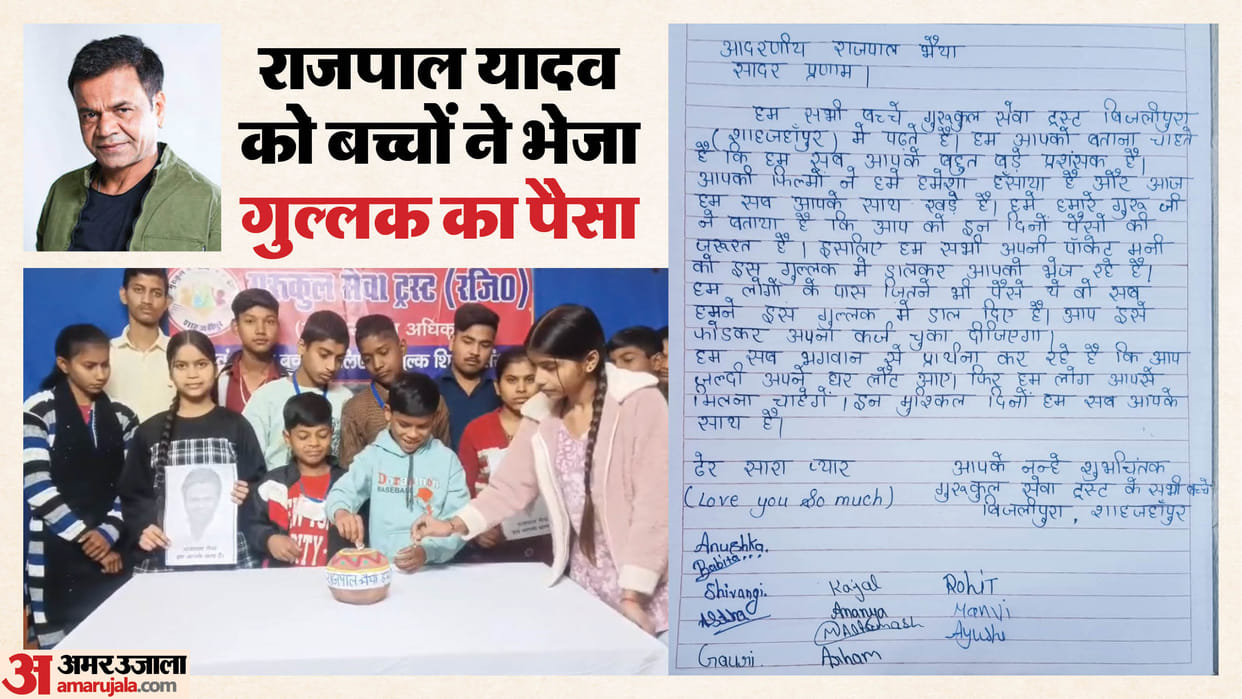 राजपाल यादव
को बच्चों ने भेजा
गुल्लक का पैसा
गुरुकुल सेवा ट्रस्ट (रजि०)
राजपाल भैया
अमर उजाला
amarujala.com
आदरणीय राजपाल भैया
सादर प्रणाम।
हम सभी बच्चे गुरूकुल सेवा ट्रस्ट बिजलीपुरा
(शाहजहाँपुर) में पढ़ते है। हम आपको बताना चाहते
है कि हम सब आपके बहुत बड़े प्रशंसक है।
आपकी फिल्मों ने हमें हमेशा हँसाया है और आज
हम सब आपके साथ खड़े है। हमें हमारे गुरू जी
ने बताया है कि आप को इन दिनों पैसों की
जरूरत है। इसलिए हम सभी अपनी पॉकेट मनी
को इस गुल्लक में डालकर आपको भेज रहे है।
हम लोगों के पास जितने भी पैसे थे वो सब
हमने इस गुल्लक में डाल दिए है। आप इसे
फोडकर अपना कर्ज चुका दीजिएगा।
हम सब भगवान से प्रार्थना कर रहे है कि आप
जल्दी अपने घर लौट आए। फिर हम लोग आपसे
मिलना चाहेगें। इन मुश्किल दिनों हम सब आपके
साथ है।
ढेर सारा प्यार
(Love you so much)
आपके नन्हे शुभचिंतक
गुरूकुल सेवा ट्रस्ट के सभी बच्चे
बिजलीपुरा, शाहजहाँपुर
Anushka.
Babita...
Shivangi. Kajal Rohit
Ananya Manvi
Ayushi
Gauri.